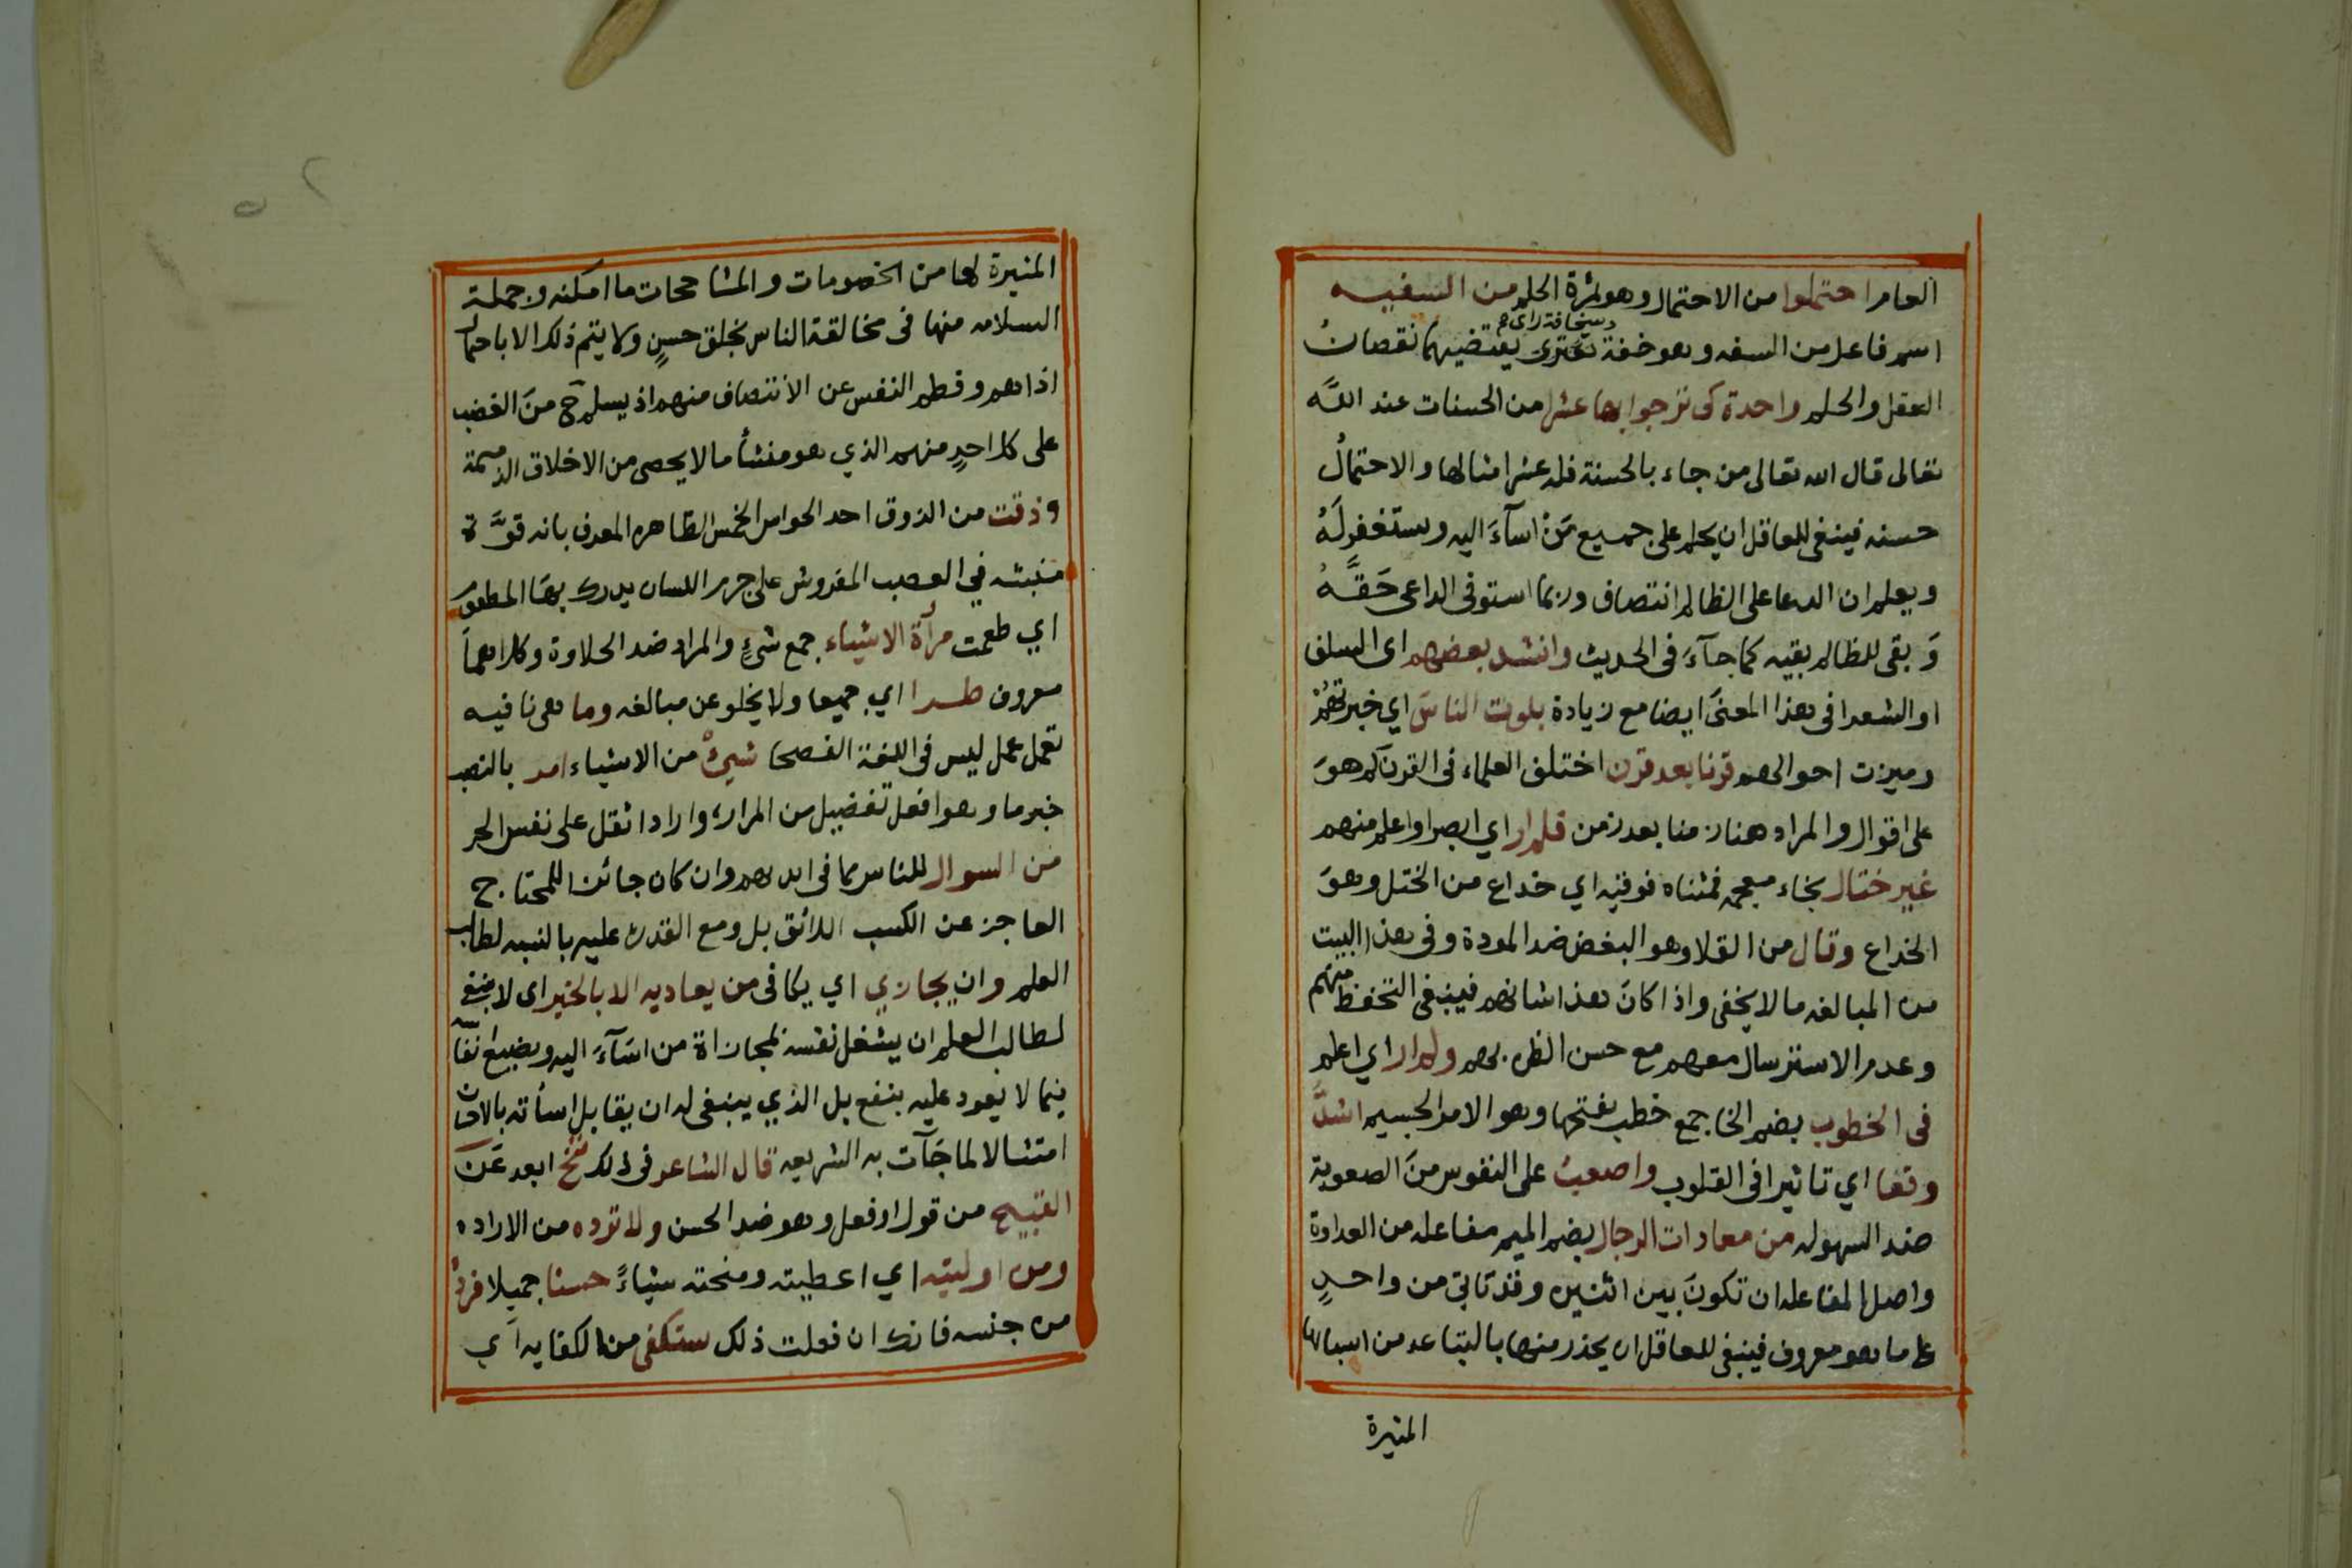 العام احتملوا من الاحتمال وهو ثمرة الحلم من السفيه
اسم فاعل من السفه وهو خفة وسخافة راى تعترى يقتضيهما نقصان
العقل والحلم واحدة كى ترجوا بها عشرا من الحسنات عند الله
تعالى قال الله تعالى من جاء بالحسنة فله عشر امثالها والاحتمال
حسنه فينبغى للعاقل ان يحلم على جميع من اسآء اليه ويستغفر له
ويعلم ان الدعا على الظالم انتصاف وربما استوفى الداعى حقه
وبقى للظالم بقيه كما جآء فى الحديث وانشد بعضهم اى السلف
او الشعرا فى هذا المعنى ايضا مع زيادة بلوت الناس اي خبرتهم
وميزت احوالهم قرنا بعد قرن اختلف العلماء فى القرن كم هو
على اقوال والمراد هنا زمنا بعد زمن فلم ار اي ابصر او اعلم منهم
غير ختال بخاء معجمه فمثناه فوقيه اي خداع من الختل وهو
الخداع وقال من القلا وهو البغض ضد المودة وفى هذا البيت
من المبالغه ما لا يخفى واذا كان هذا شانهم فينبغى التحفظ منهم
وعدم الاسترسال معهم مع حسن الظن بهم ولم ار اي اعلم
فى الخطوب بضم الخا جمع خطب بفتحها وهو الامر الجسيم اشد
وقعا اي تاثيرا فى القلوب واصعب على النفوس من الصعوبة
ضد السهوله من معادات الرجال بضم الميم مفاعله من العداوة
واصل المفاعله ان تكون بين اثنين وقد تاتى من واحد
على ما هو معروف فينبغى للعاقل ان يحذر منها بالتباعد من اسبابها
المثيرة
المثيرة لها من الخصومات والمشاححات ما امكنه وجملة
السلامه منها فى مخالقة الناس بخلق حسن ولا يتم ذلك الا باحتمال
اذاهم وفطم النفس عن الانتصاف منهم اذ يسلم ح من الغضب
على كل احد منهم الذي هو منشأ ما لا يحصى من الاخلاق الذميمة
وذقت من الذوق احد الحواس الخمس الظاهره المعرف بانه قوة
منبثه في العصب المفروش على جرم اللسان يدرك بها المطعوم
اي طعمت مرآة الاشياء جمع شىء والمراد ضد الحلاوة وكلاهما
معروف طرا اي جميعا ولا يخلو عن مبالغه وما هى نافيه
تعمل عمل ليس فى اللغة الفصحا شيئ من الاشياء امر بالنصب
خبر ما وهو افعل تفضيل من المراره واراد اثقل على نفس الحر
من السوال للناس مما فى ايديهم وان كان جائزا للمحتاج
العاجز عن الكسب اللائق بل ومع القدره عليه بالنسبه لطالب
العلم وان يجازي اي يكافى من يعاديه الا بالخير اى لا ينبغى
لطالب العلم ان يشغل نفسه بمجازاة من اسآء اليه ويضيع انفاسه
فيما لا يعود عليه بنفع بل الذي ينبغى له ان يقابل اسأته بالاحسان
امتثالا لما جآت به الشريعه قال الشاعر فى ذلك تنح ابعد عن
القبيح من قول او فعل وهو ضد الحسن ولا ترده من الاراده
ومن اوليته اي اعطيته ومنحته شياء حسنا جميلا فزده
من جنسه فانك ان فعلت ذلك ستكفى من الكفايه اي